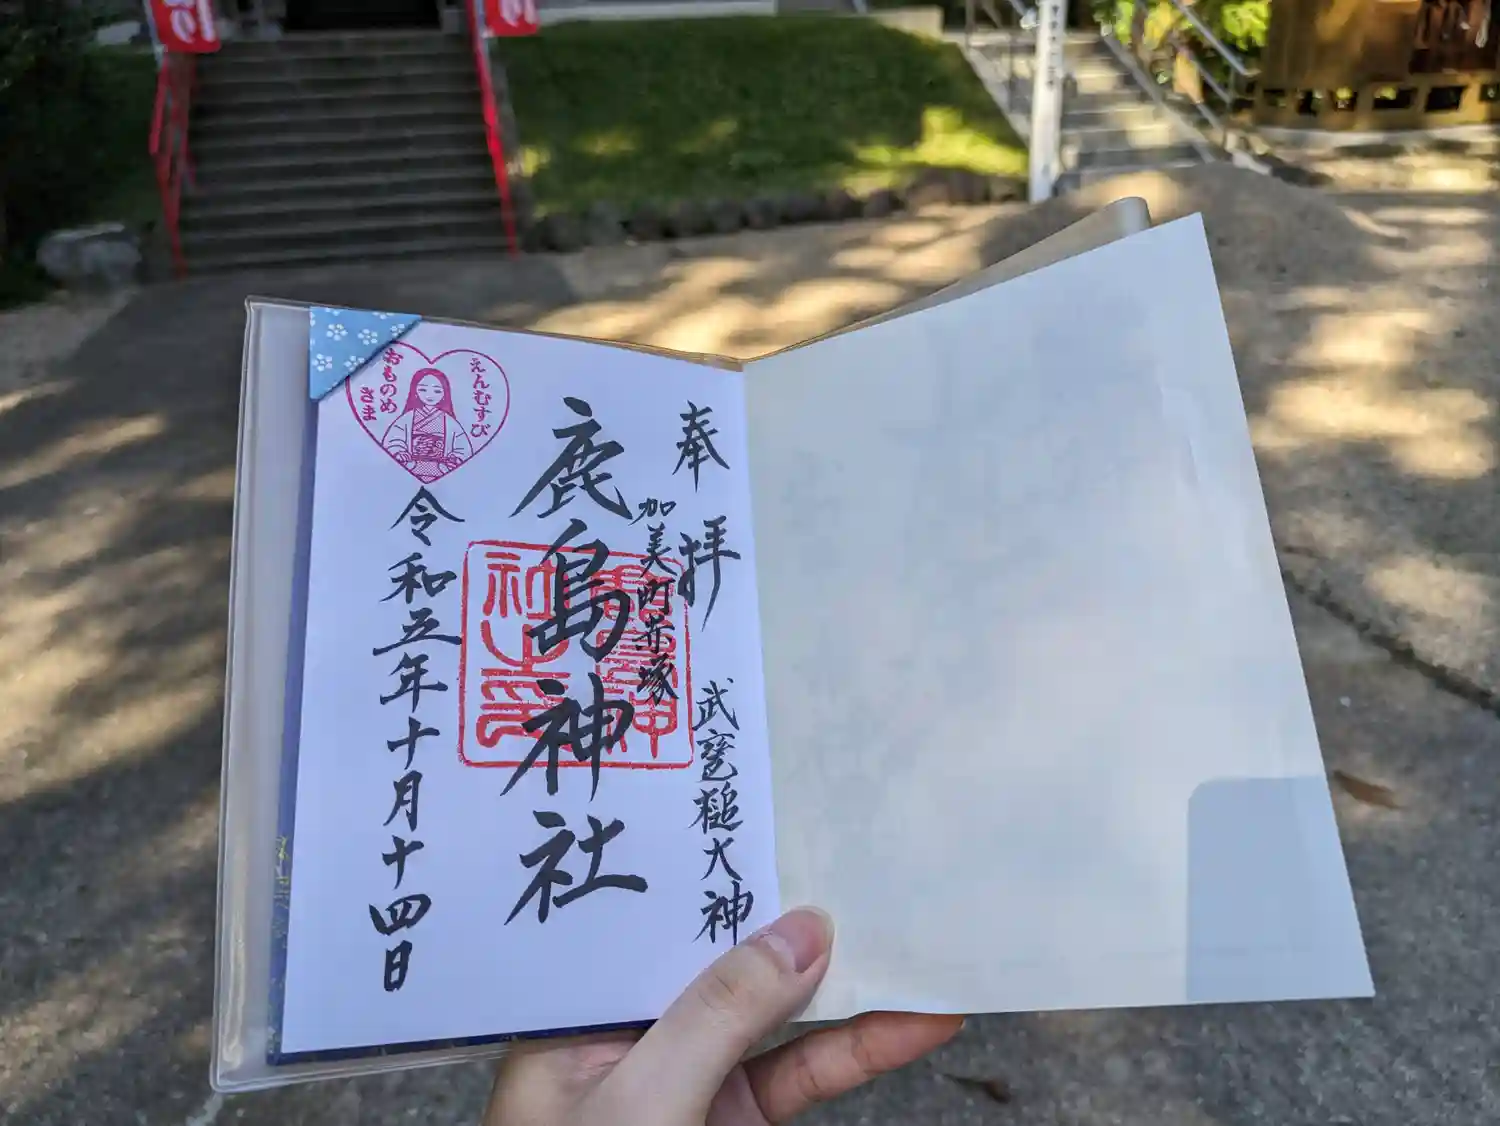 奉拝
武甕槌大神
加美町赤塚
鹿島神社
鹿島神社之印
令和五年十月十四日
えんむすび
おものめ
さま